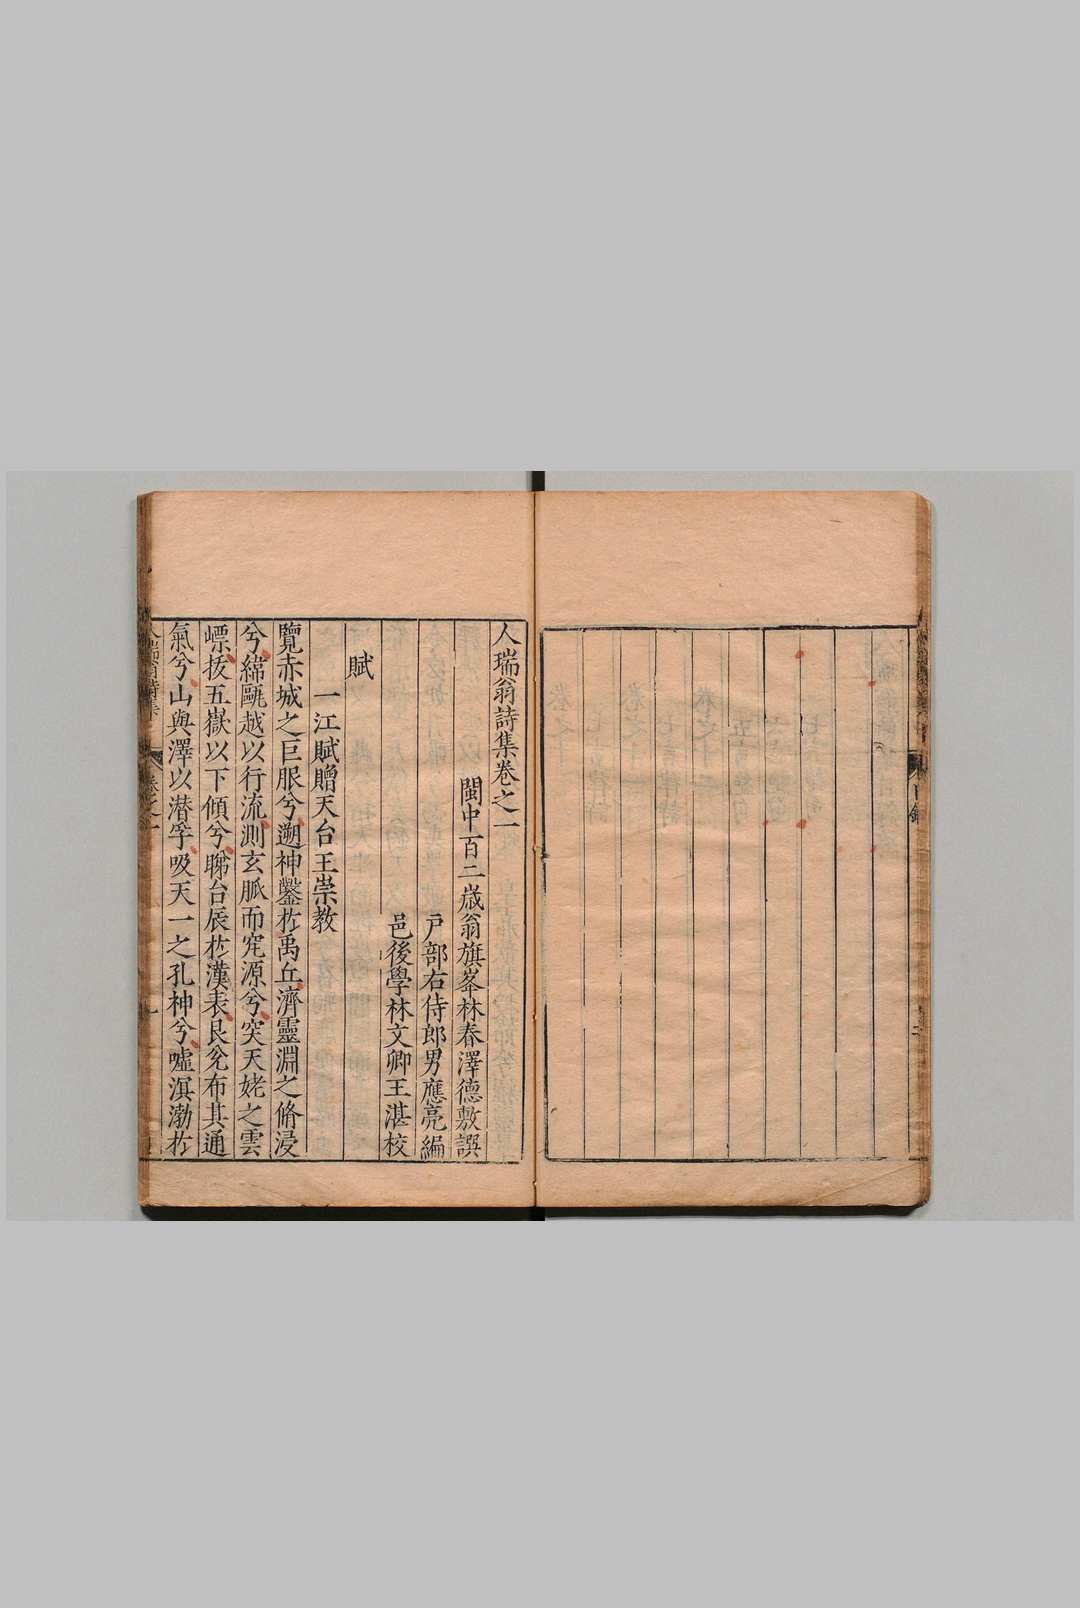 人瑞翁詩集卷之一
閩中一百二歲翁旗峯林春澤德敷譔
戶部右侍郎男應亮編
邑後學林文卿王湛校
賦
一江賦贈天台王崇教
覽赤城之巨服兮遡神鑿於禹丘濟靈淵之脩浸
兮綿甌越以行流測玄脈而窕源兮突天姥之雲
嶫拔五嶽以下傾兮睇台辰於漢表艮兊布其通
氣兮山與澤以潜孚吸天一之孔神兮噓溟渤於
人瑞翁詩集
卷之一
目錄